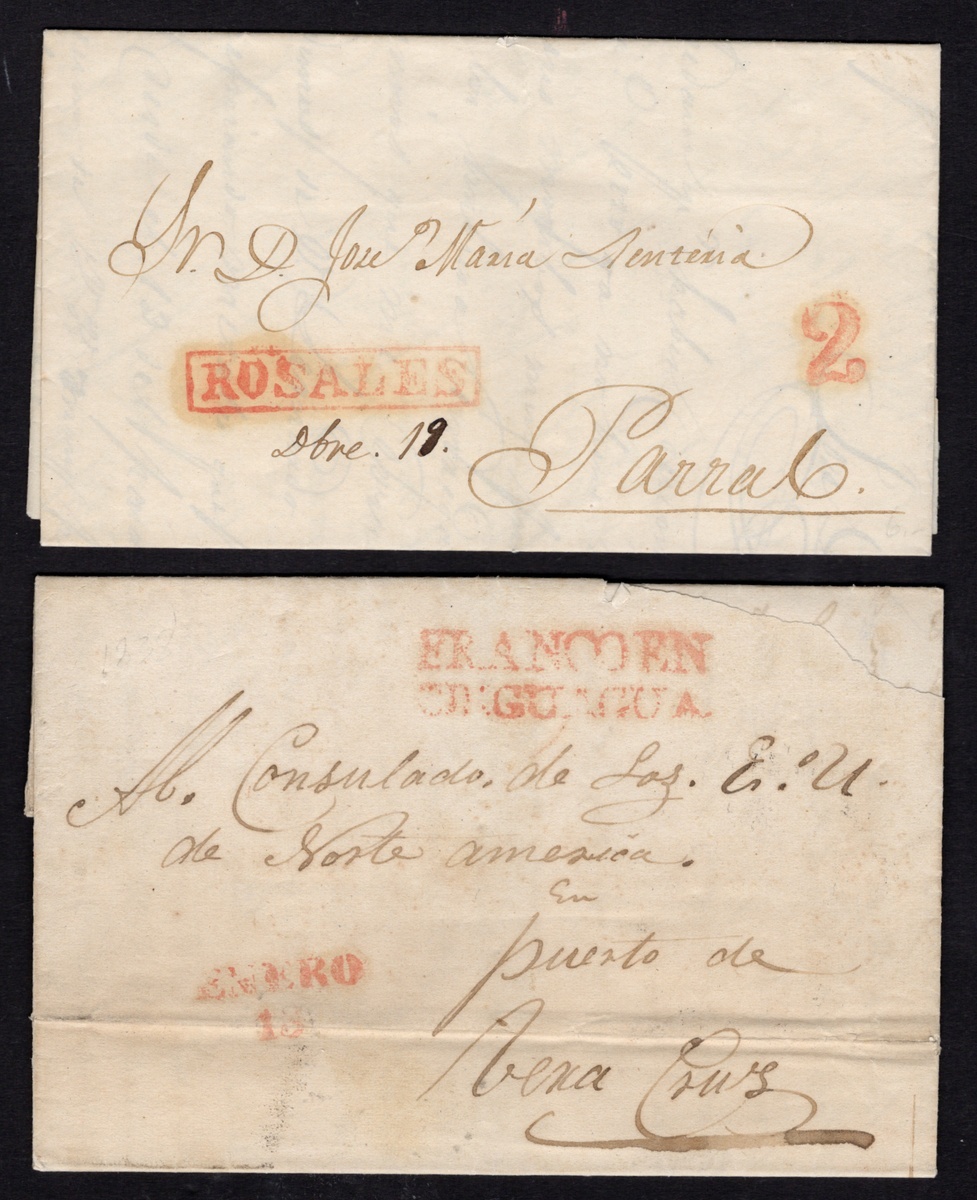 Sr. D. José María Rentería
2
ROSALES
Dbre. 19.
Parral.
FRANCO EN
CHIGUAGUA
Al. Consulado. de Los. E. U.
de Norte america.
En
puerto de
ENERO
13
Vera Cruz